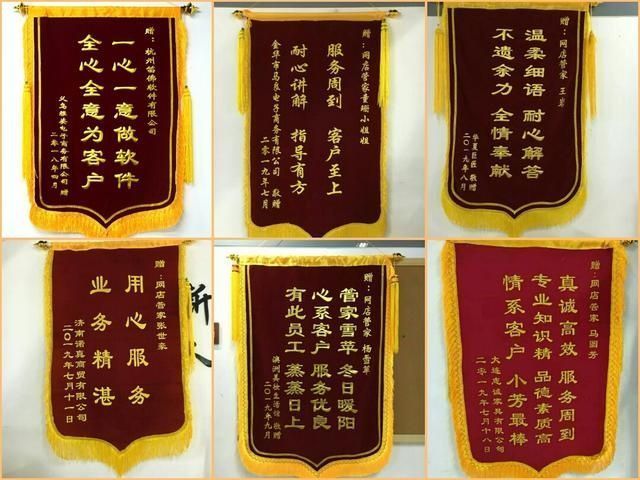 赠：杭州笛佛软件有限公司
一心一意做软件
全心全意为客户
义乌雅姿电子商务有限公司 赠
二零一八年四月
赠：网店管家童珊小姐姐
服务周到 客户至上
耐心讲解 指导有方
金华市马良电子商务有限公司 敬赠
二零一九年七月
赠：网店管家 王
温柔细语 耐心解答
不遗余力 全情奉献
华夏巨匠 敬赠
二〇一九年八月
赠：网店管家张世豪
用心服务
业务精湛
济南诺真商贸有限公司
二〇一九年七月十一日
赠：网店管家 杨雪苹
管家雪苹 冬日暖阳
心系客户 服务优良
有此员工 蒸蒸日上
澳洲美妆生活馆 敬赠
二〇一九年九月
赠：网店管家 马园芳
真诚高效 服务周到
专业知识精 品德素质高
情系客户 小芳最棒
大连忠诚家具有限公司
二零一九年七月十八日